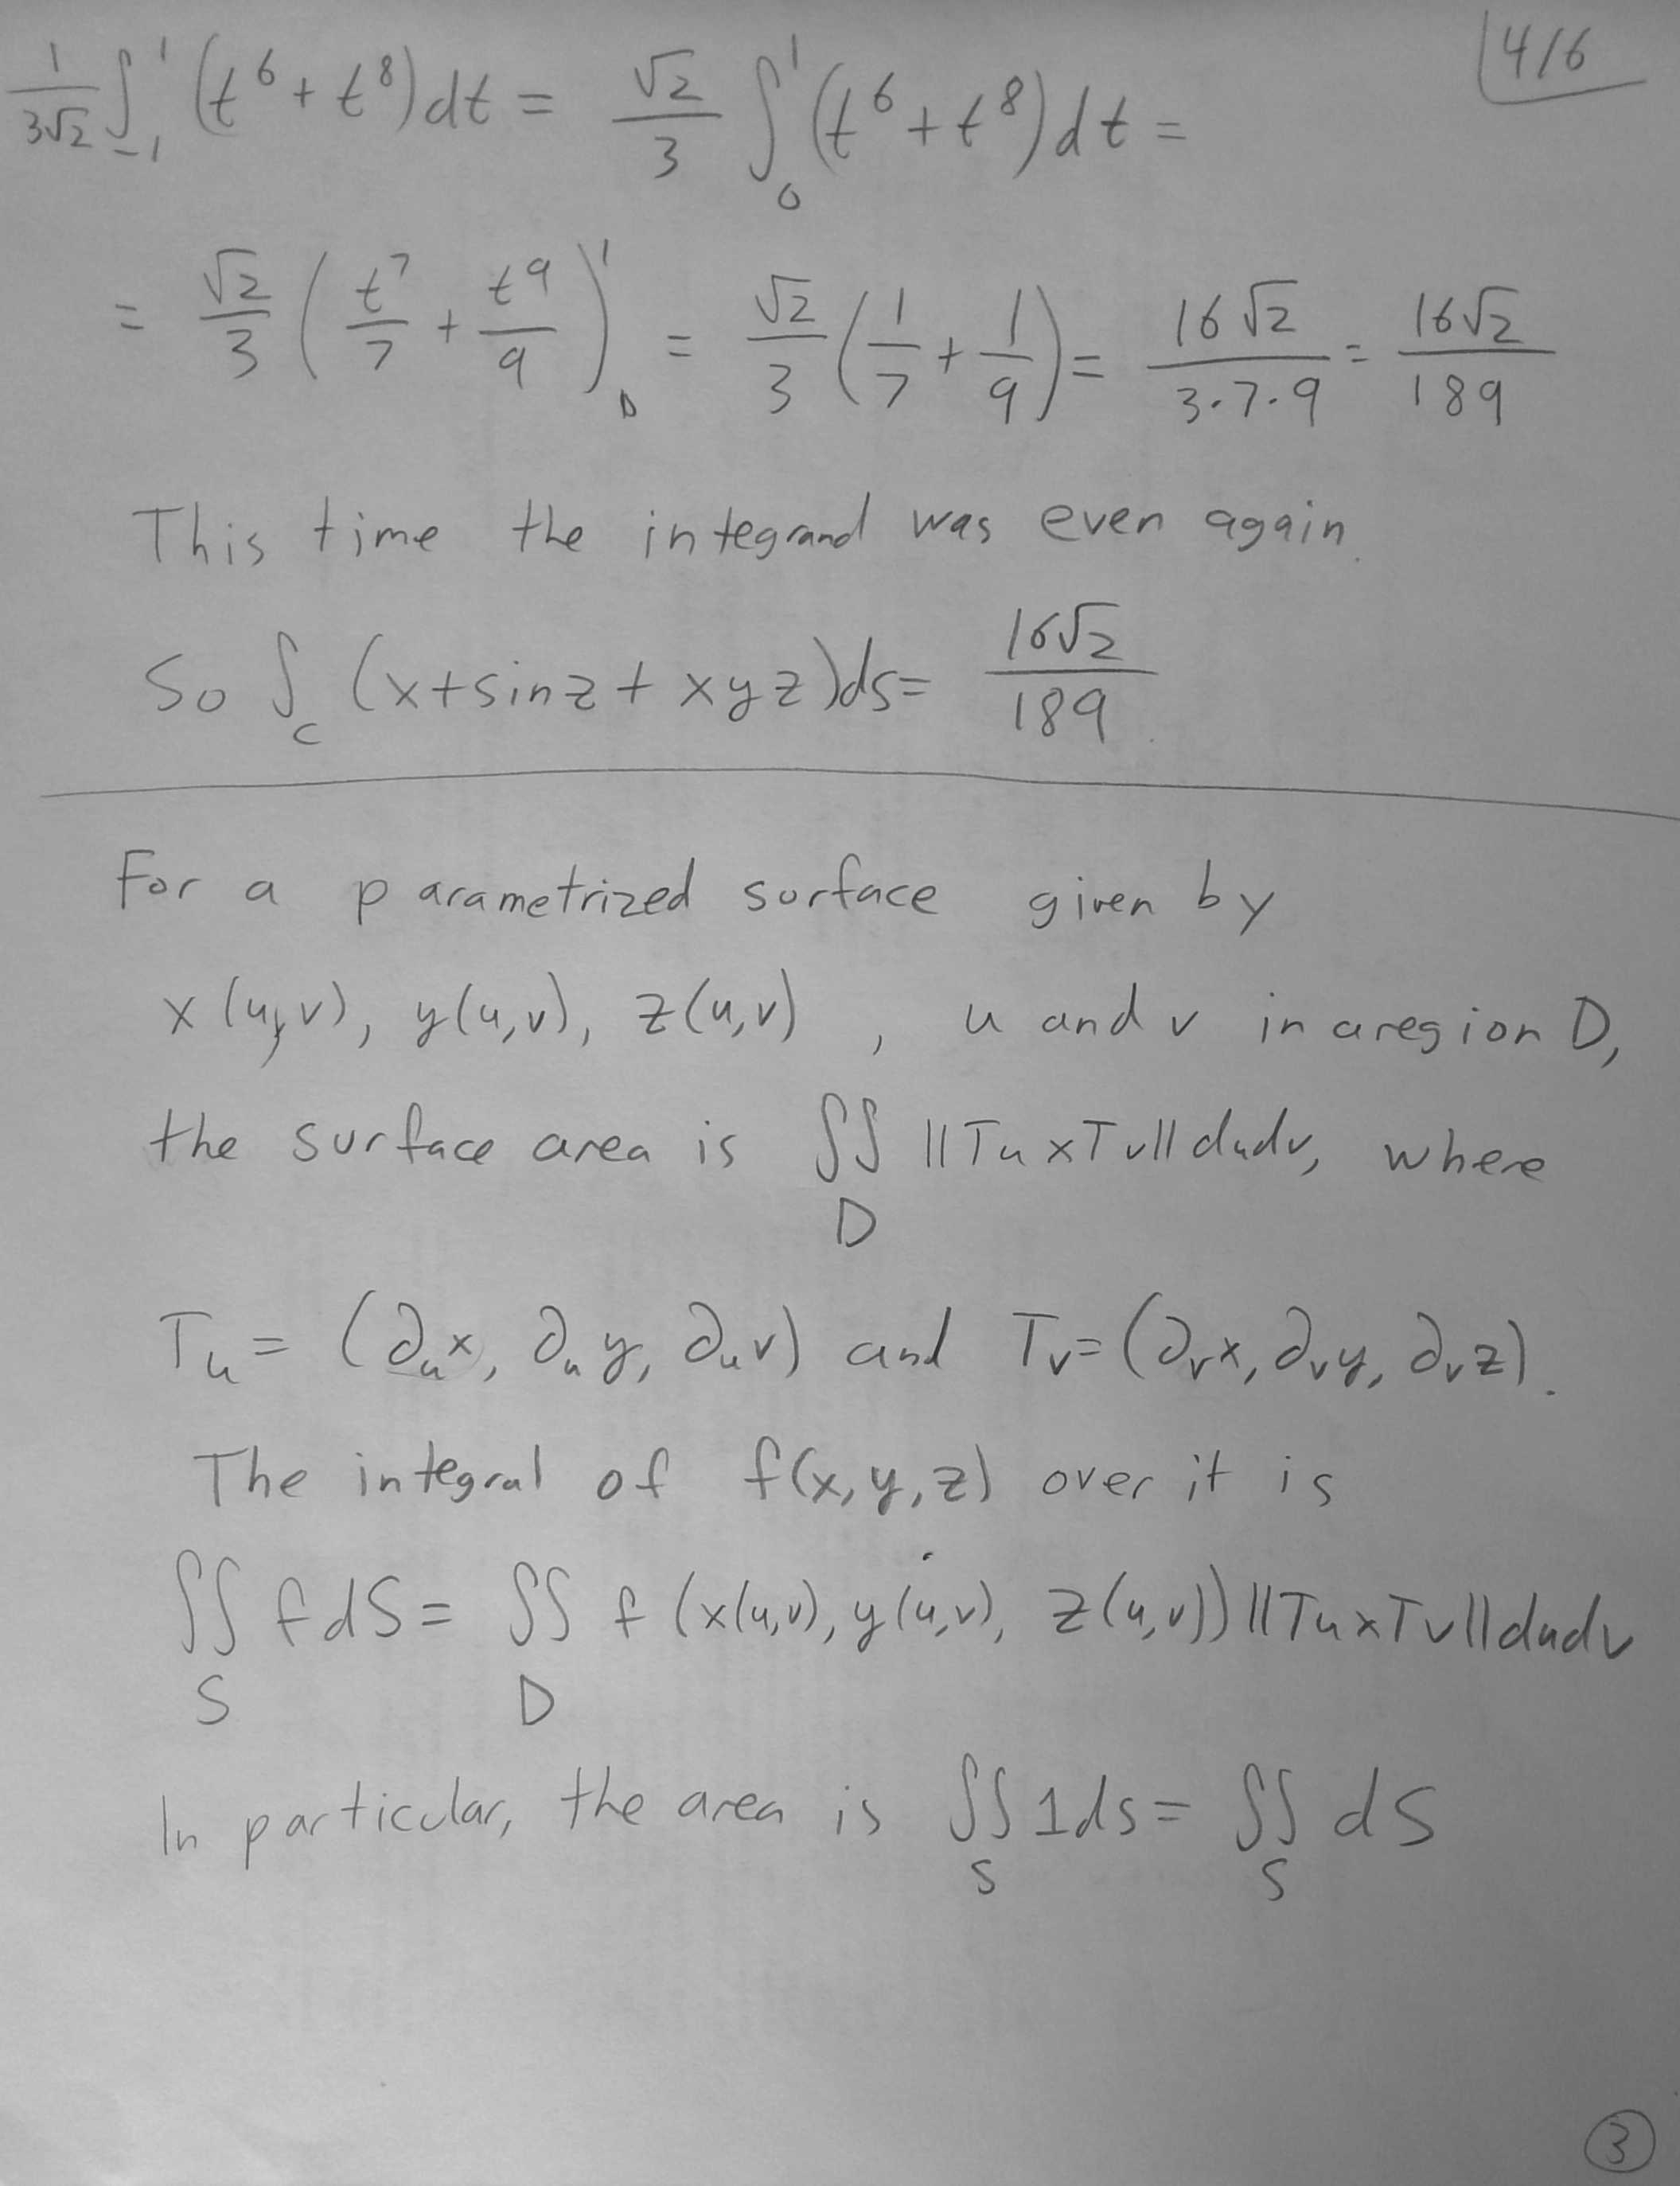 4/6
1/(3√2) ∫₋₁¹ (t⁶ + t⁸) dt = √2/3 ∫₀¹ (t⁶ + t⁸) dt =
= √2/3 (t⁷/7 + t⁹/9)₀¹ = √2/3 (1/7 + 1/9) = 16√2/(3·7·9) = 16√2/189
This time the integrand was even again.
So ∫_C (x + sin z + xyz) ds = 16√2/189.
For a parametrized surface given by
x(u,v), y(u,v), z(u,v), u and v in a region D,
the surface area is ∬_D ||Tu × Tv|| dudv, where
Tu = (∂ux, ∂uy, ∂uv) and Tv = (∂vx, ∂vy, ∂vz).
The integral of f(x,y,z) over it is
∬_S f dS = ∬_D f(x(u,v), y(u,v), z(u,v)) ||Tu × Tv|| dudv
In particular, the area is ∬_S 1 ds = ∬_S dS
3